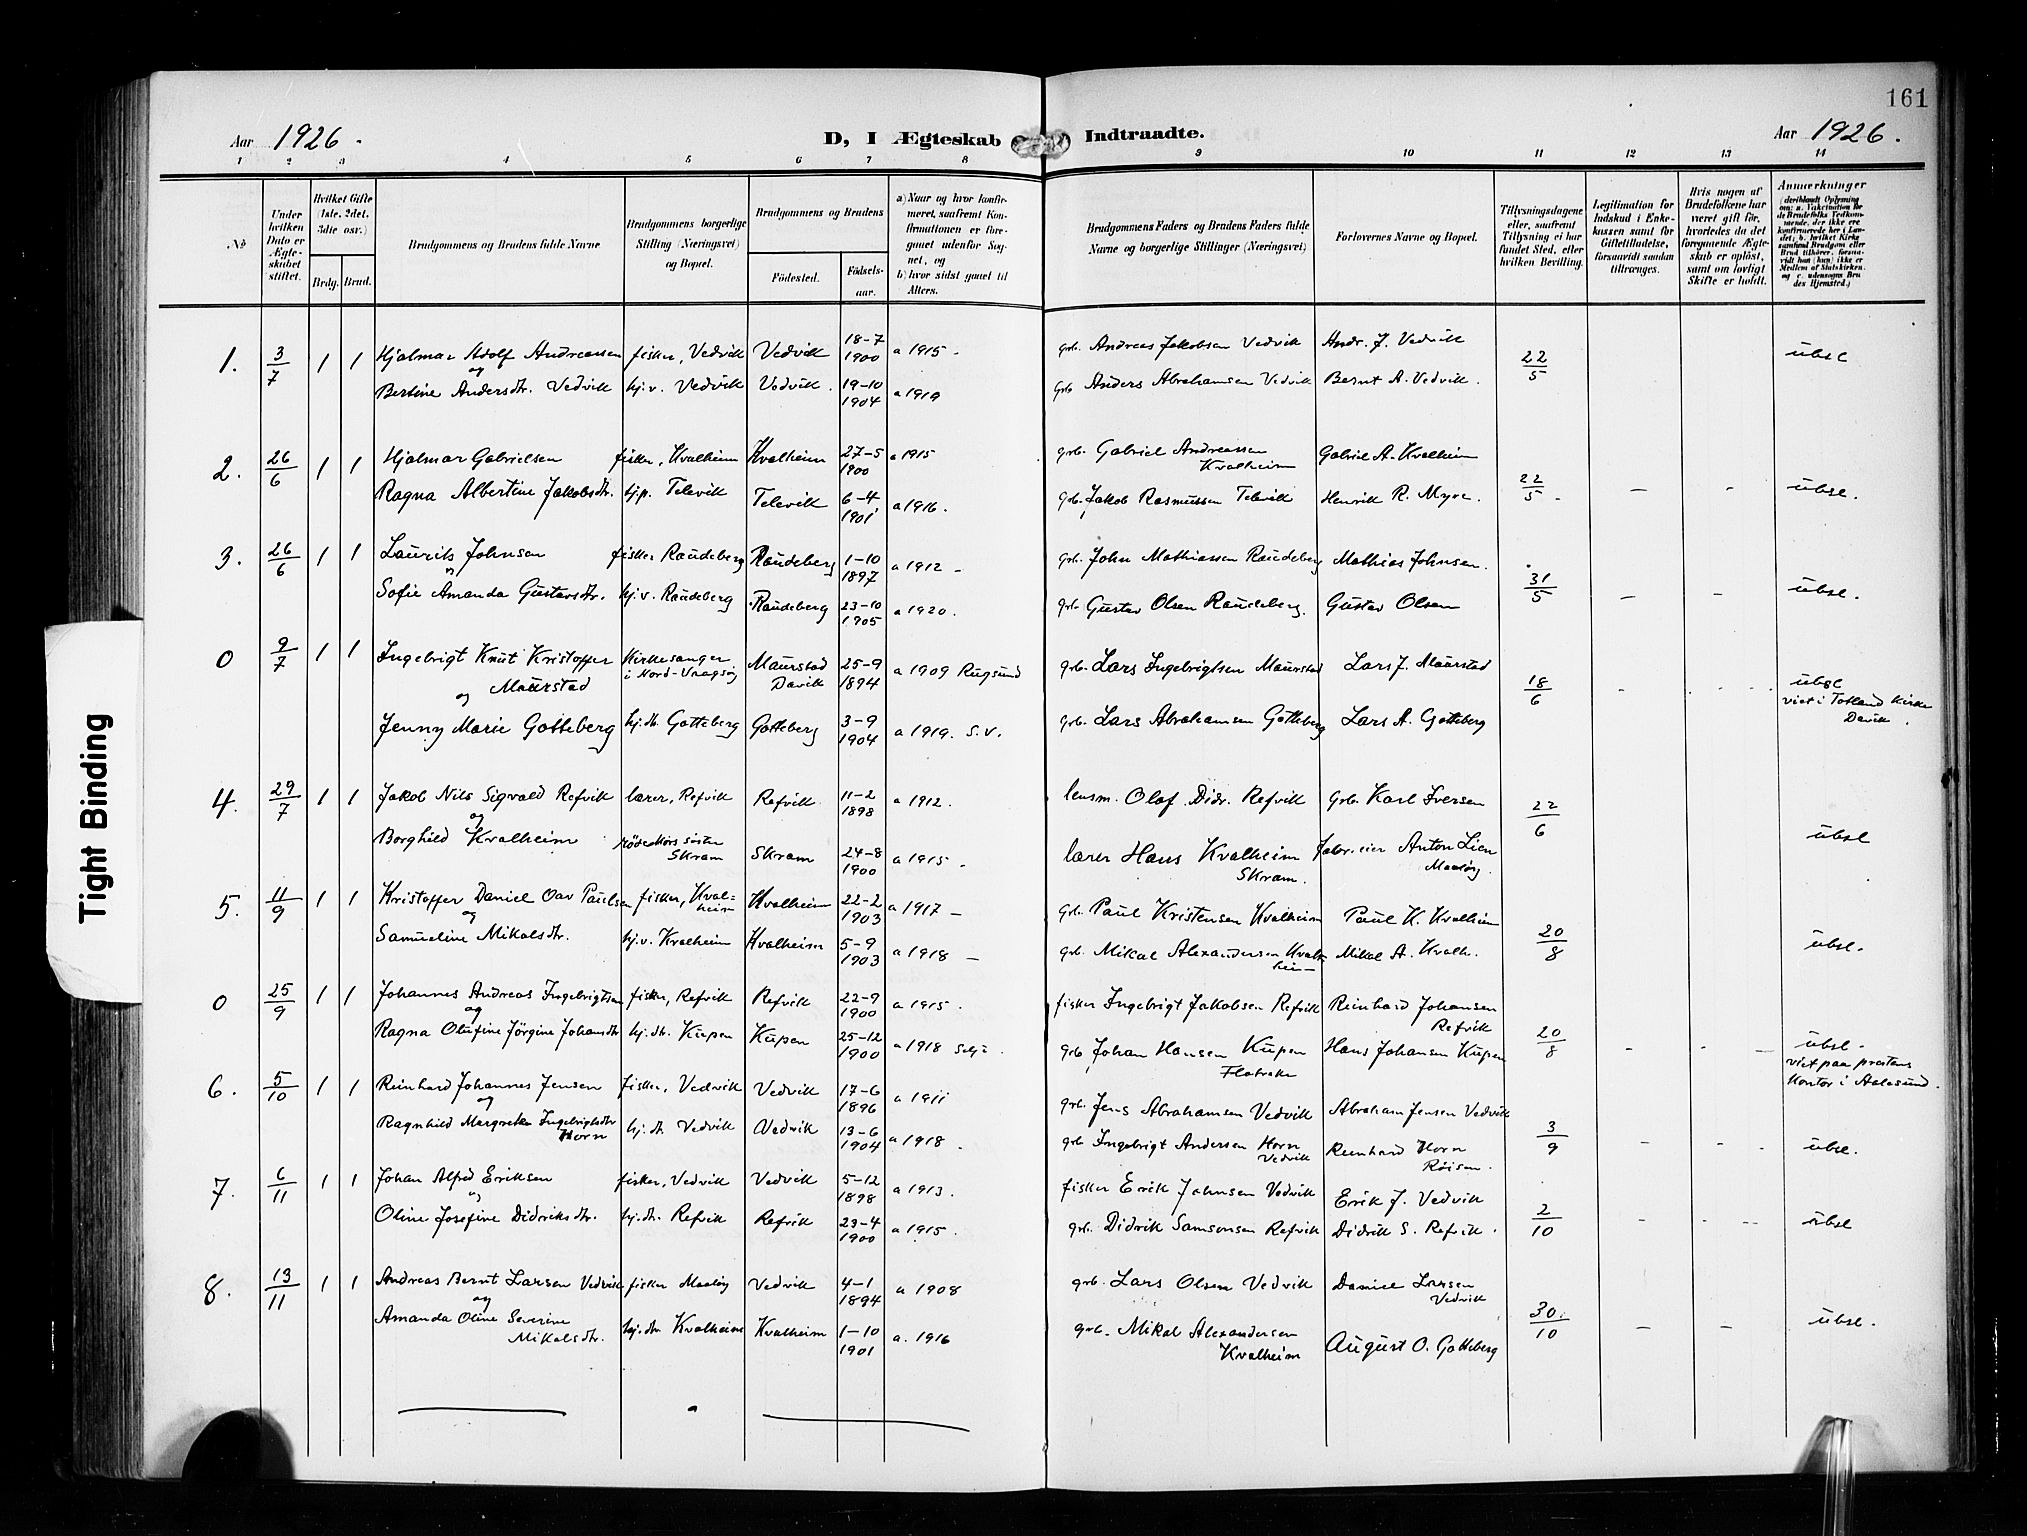 161
Aar 1926.
D, I Ægteskab Indtraadte.
Aar 1926.
1 2 3 4 5 6 7 8 9 10 11 12 13 14
No
Under hvilken Dato er Ægteskabet stiftet.
Hvilket Gifte (1ste, 2det, 3die osv.)
Brdg. Brud.
Brudgommens og Brudens fulde Navne
Brudgommens borgerlige Stilling (Næringsvei) og Bopæl.
Brudgommens og Brudens
Födested.
Födselsaar.
a) Naar og hvor konfirmeret, saafremt Konfirmationen er foregaaet udenfor Sognet, og
b) hvor sidst gaaet til Alters.
Brudgommens Faders og Brudens Faders fulde Navne og borgerlige Stillinger (Næringsvei)
Forlovernes Navne og Bopæl.
Tillysningsdagene eller, saafremt Tillysning ei har fundet Sted, efter hvilken Bevilling.
Legitimation for Indskud i Enkekassen samt for Giftetilladelse, forsaavidt saadan tiltrænges.
Hvis nogen af Brudefolkene har været gift før, hvorledes da det foregaaende Ægteskab er oplöst, samt om lovligt Skifte er holdt.
Anmærkninger
(deriblandt Oplysning om: a. Vakcination for de Brudefolks Vedkommende, der ikke ere konfirmerede her i Landet; b. hvilket Kirkesamfund Brudgom eller Brud tilhörer, forsaavidt han (hun) ikke er Medlem af Statskirken, og c. udensogns Brudes Hjemsted.)
1. 3/7 1 1 Hjalmar Adolf Andreassen fisker, Vedvik Vedvik 18-7 1900 a 1915 - grb. Andreas Jakobsen Vedvik Andr. J. Vedvik 22/5 übsl
og
Bertine Andersdtr. Vedvik hj.v. Vedvik Vedvik. 19-10 1904 a 1919 grb Anders Abrahamsen Vedvik Bernt A. Vedvik.
2. 26/6 1 1 Hjalmar Gabrielsen fisker, Kvalheim Kvalheim 27-5 1900 a 1915 grb. Gabriel Andreassen Kvalheim Gabriel A. Kvalheim 22/5. - - übsl.
Ragna Albertine Jakobsdtr. hj.p. Televik Televik 6-4 1901 a 1916. grb. Jakob Rasmussen Televik Henrik R. Myre.
3. 26/6 1 1 Laurits Johnsen fisker Raudeberg Raudeberg 1-10 1897 a 1912 - grb. John Mathiassen Raudeberg Mathias Johnsen. 31/5 - - übsl.
og
Sofie Amanda Gustavsdtr. hj.v. Raudeberg Raudeberg 23-10 1905 a 1920. grb. Gustav Olsen Raudeberg. Gustav Olsen
0 9/7 1 1 Ingebrigt Knut Kristoffer Maurstad Kirkesanger i Nord-Vaagsøy Maurstad Davik 25-9 1894 a 1909 Rugsund grb. Lars Ingebrigtsen Maurstad Lars J. Maurstad 18/6 übsl viet i Totland Kirke Davik.
og
Jenny Marie Gotteberg hj.dtr. Gotteberg Gotteberg 3-9 1904 a 1919. S.V. grb. Lars Abrahamsen Gotteberg Lars A. Gotteberg
4. 29/7 1 1 Jakob Nils Sigvald Refvik lærer, Refvik Refvik 11-2 1898 a 1912. lensm. Olaf Didr. Refvik grb. Karl Iversen 22/6 übsl
og
Borghild Kvalheim søster Skram Skram 24-8 1900 a 1915. lærer Hans Kvalheim Skram. Anton Lien Maaløy.
5. 11/9 1 1 Kristoffer Daniel Oav Paulsen fisker, Kvalheim Kvalheim 22-2 1903 a 1917 - grb. Paul Kristensen Kvalheim Paul K. Kvalheim 20/8 übsl.
og
Samueline Mikalsdtr. hj.v. Kvalheim Kvalheim 5-9 1903 a 1918 - grb. Mikal Alexandersen Kvalheim Mikal A. Kvalh.
0 25/9 1 1 Johannes Andreas Ingebrigtsen fisker, Refvik Refvik 22-9 1900 a 1915. fisker Ingebrigt Jakobsen Refvik Reinhard Johansen Refvik 20/8 - - - übsl. viet paa prestens kontor i Aalesund.
og
Ragna Olufine Jörgine Johansdtr hj.dtr. Kupen Kupen 25-12 1900 a 1918 Selje. grb Johan Hansen Kupen Flatraker Hans Johansen Kupen
6. 5/10 1 1 Reinhard Johannes Jensen fisker, Vedvik Vedvik 17-6 1896 a 1911 grb. Jens Abrahamsen Vedvik Abraham Jensen Vedvik 3/9 - - übsl.
og
Ragnhild Margrethe Ingebrigtsdtr Horn hj.dtr Vedvik Vedvik 13-6 1904 a 1918. grb Ingebrigt Andersen Horn Vedvik Reinhard Horn Röisen.
7. 6/11 1 1 Johan Alfred Eriksen fisker, Vedvik Vedvik 5-12 1898 a 1913. fisker Erik Johnsen Vedvik Erik J. Vedvik 2/10 - - übsl
og
Oline Josefine Didriksdtr. hj.dtr. Refvik Refvik 23-4 1900 a 1915. grb. Didrik Samsonsen Refvik Didrik S. Refvik.
8. 13/11 1 1 Andreas Bernt Larsen Vedvik fisker Maaløy Vedvik 4-1 1894 a 1908 grb. Lars Olsen Vedvik Daniel Larsen Vedvik 30/10 - - übsl.
og
Amanda Oline Severine Mikalsdtr. hj.dtr Kvalheim Kvalheim 1-10 1901 a. 1916 grb. Mikal Alexandersen Kvalheim August O. Gotteberg
Tight Binding